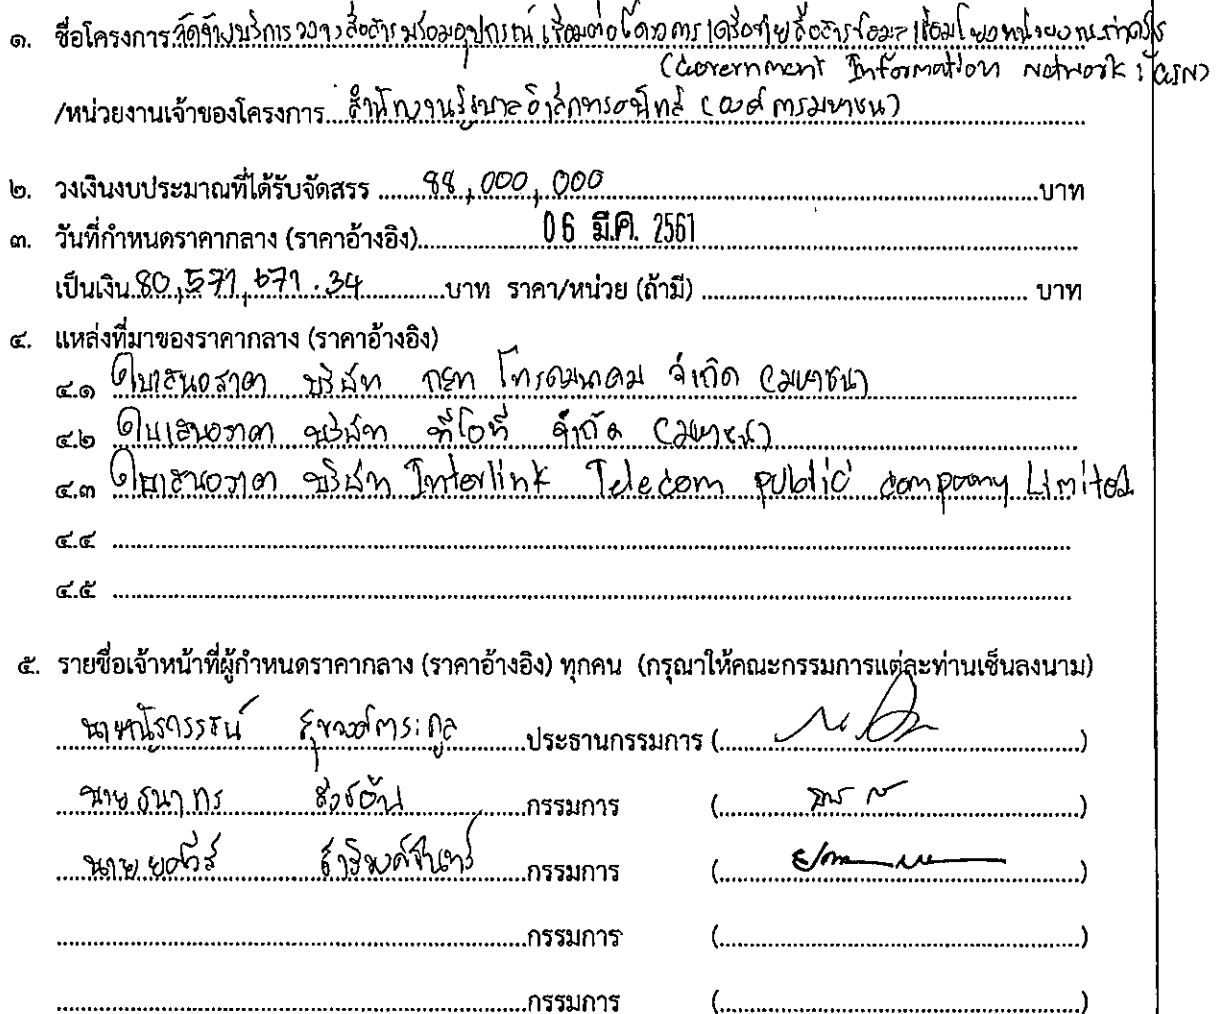 ๑. ชื่อโครงการ จัดจ้างบริการวงจรสื่อสารพร้อมอุปกรณ์ เชื่อมต่อโครงการเครือข่ายสื่อสารข้อมูลเชื่อมโยงหน่วยงานภาครัฐ
(Government Information Network : GIN)
/หน่วยงานเจ้าของโครงการ สำนักงานรัฐบาลอิเล็กทรอนิกส์ (องค์การมหาชน)
๒. วงเงินงบประมาณที่ได้รับจัดสรร 88,000,000 บาท
๓. วันที่กำหนดราคากลาง (ราคาอ้างอิง) 06 มี.ค. 2561
เป็นเงิน 80,571,671.34 บาท ราคา/หน่วย (ถ้ามี) บาท
๔. แหล่งที่มาของราคากลาง (ราคาอ้างอิง)
๔.๑ ใบเสนอราคา บริษัท กสท โทรคมนาคม จำกัด (มหาชน)
๔.๒ ใบเสนอราคา บริษัท ทีโอที จำกัด (มหาชน)
๔.๓ ใบเสนอราคา บริษัท Interlink Telecom public company Limited
๔.๔
๔.๕
๕. รายชื่อเจ้าหน้าที่ผู้กำหนดราคากลาง (ราคาอ้างอิง) ทุกคน (กรุณาให้คณะกรรมการแต่ละท่านเซ็นลงนาม)
ประธานกรรมการ ( )
นาย ธนากร กรรมการ ( )
นาย กรรมการ ( )
กรรมการ ( )
กรรมการ ( )